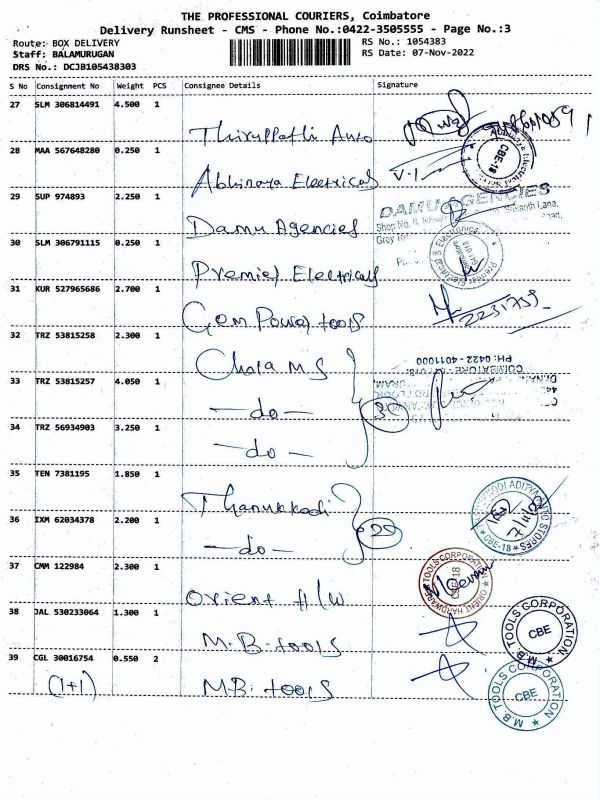 THE PROFESSIONAL COURIERS, Coimbatore
Delivery Runsheet - CMS - Phone No.:0422-3505555 - Page No.:3
Route: BOX DELIVERY RS No.: 1054383
Staff: BALAMURUGAN RS Date: 07-Nov-2022
DRS No.: DCJB105438303
S No Consignment No Weight PCS Consignee Details Signature
27 SLM 306814491 4.500 1
Thiruppathi Auto
28 MAA 567648280 0.250 1
Abhinaya Electricals V.1
CBE-18
29 SUP 974893 2.250 1
DAMU AGENCIES
Damu Agencies
30 SLM 306791115 0.250 1
Premier Electricals
31 KUR 527965686 2.700 1
Gem Power tools 2231759
32 TRZ 53815258 2.300 1
Chola M S
PH: 0422 - 4011000
COIMBATORE
33 TRZ 53815257 4.050 1
-do-
34 TRZ 56934903 3.250 1
-do-
35 TEN 7381195 1.850 1
Thanukkodi
36 IXM 62034378 2.200 1
-do-
CBE-18
37 CMM 122984 2.300 1
Orient H/W
38 JAL 530233064 1.300 1
M.B. tools
M.B. TOOLS CORPORATION
CBE
39 CGL 30016754 0.550 2
(1+1) M.B. tools
M.B. TOOLS CORPORATION
CBE